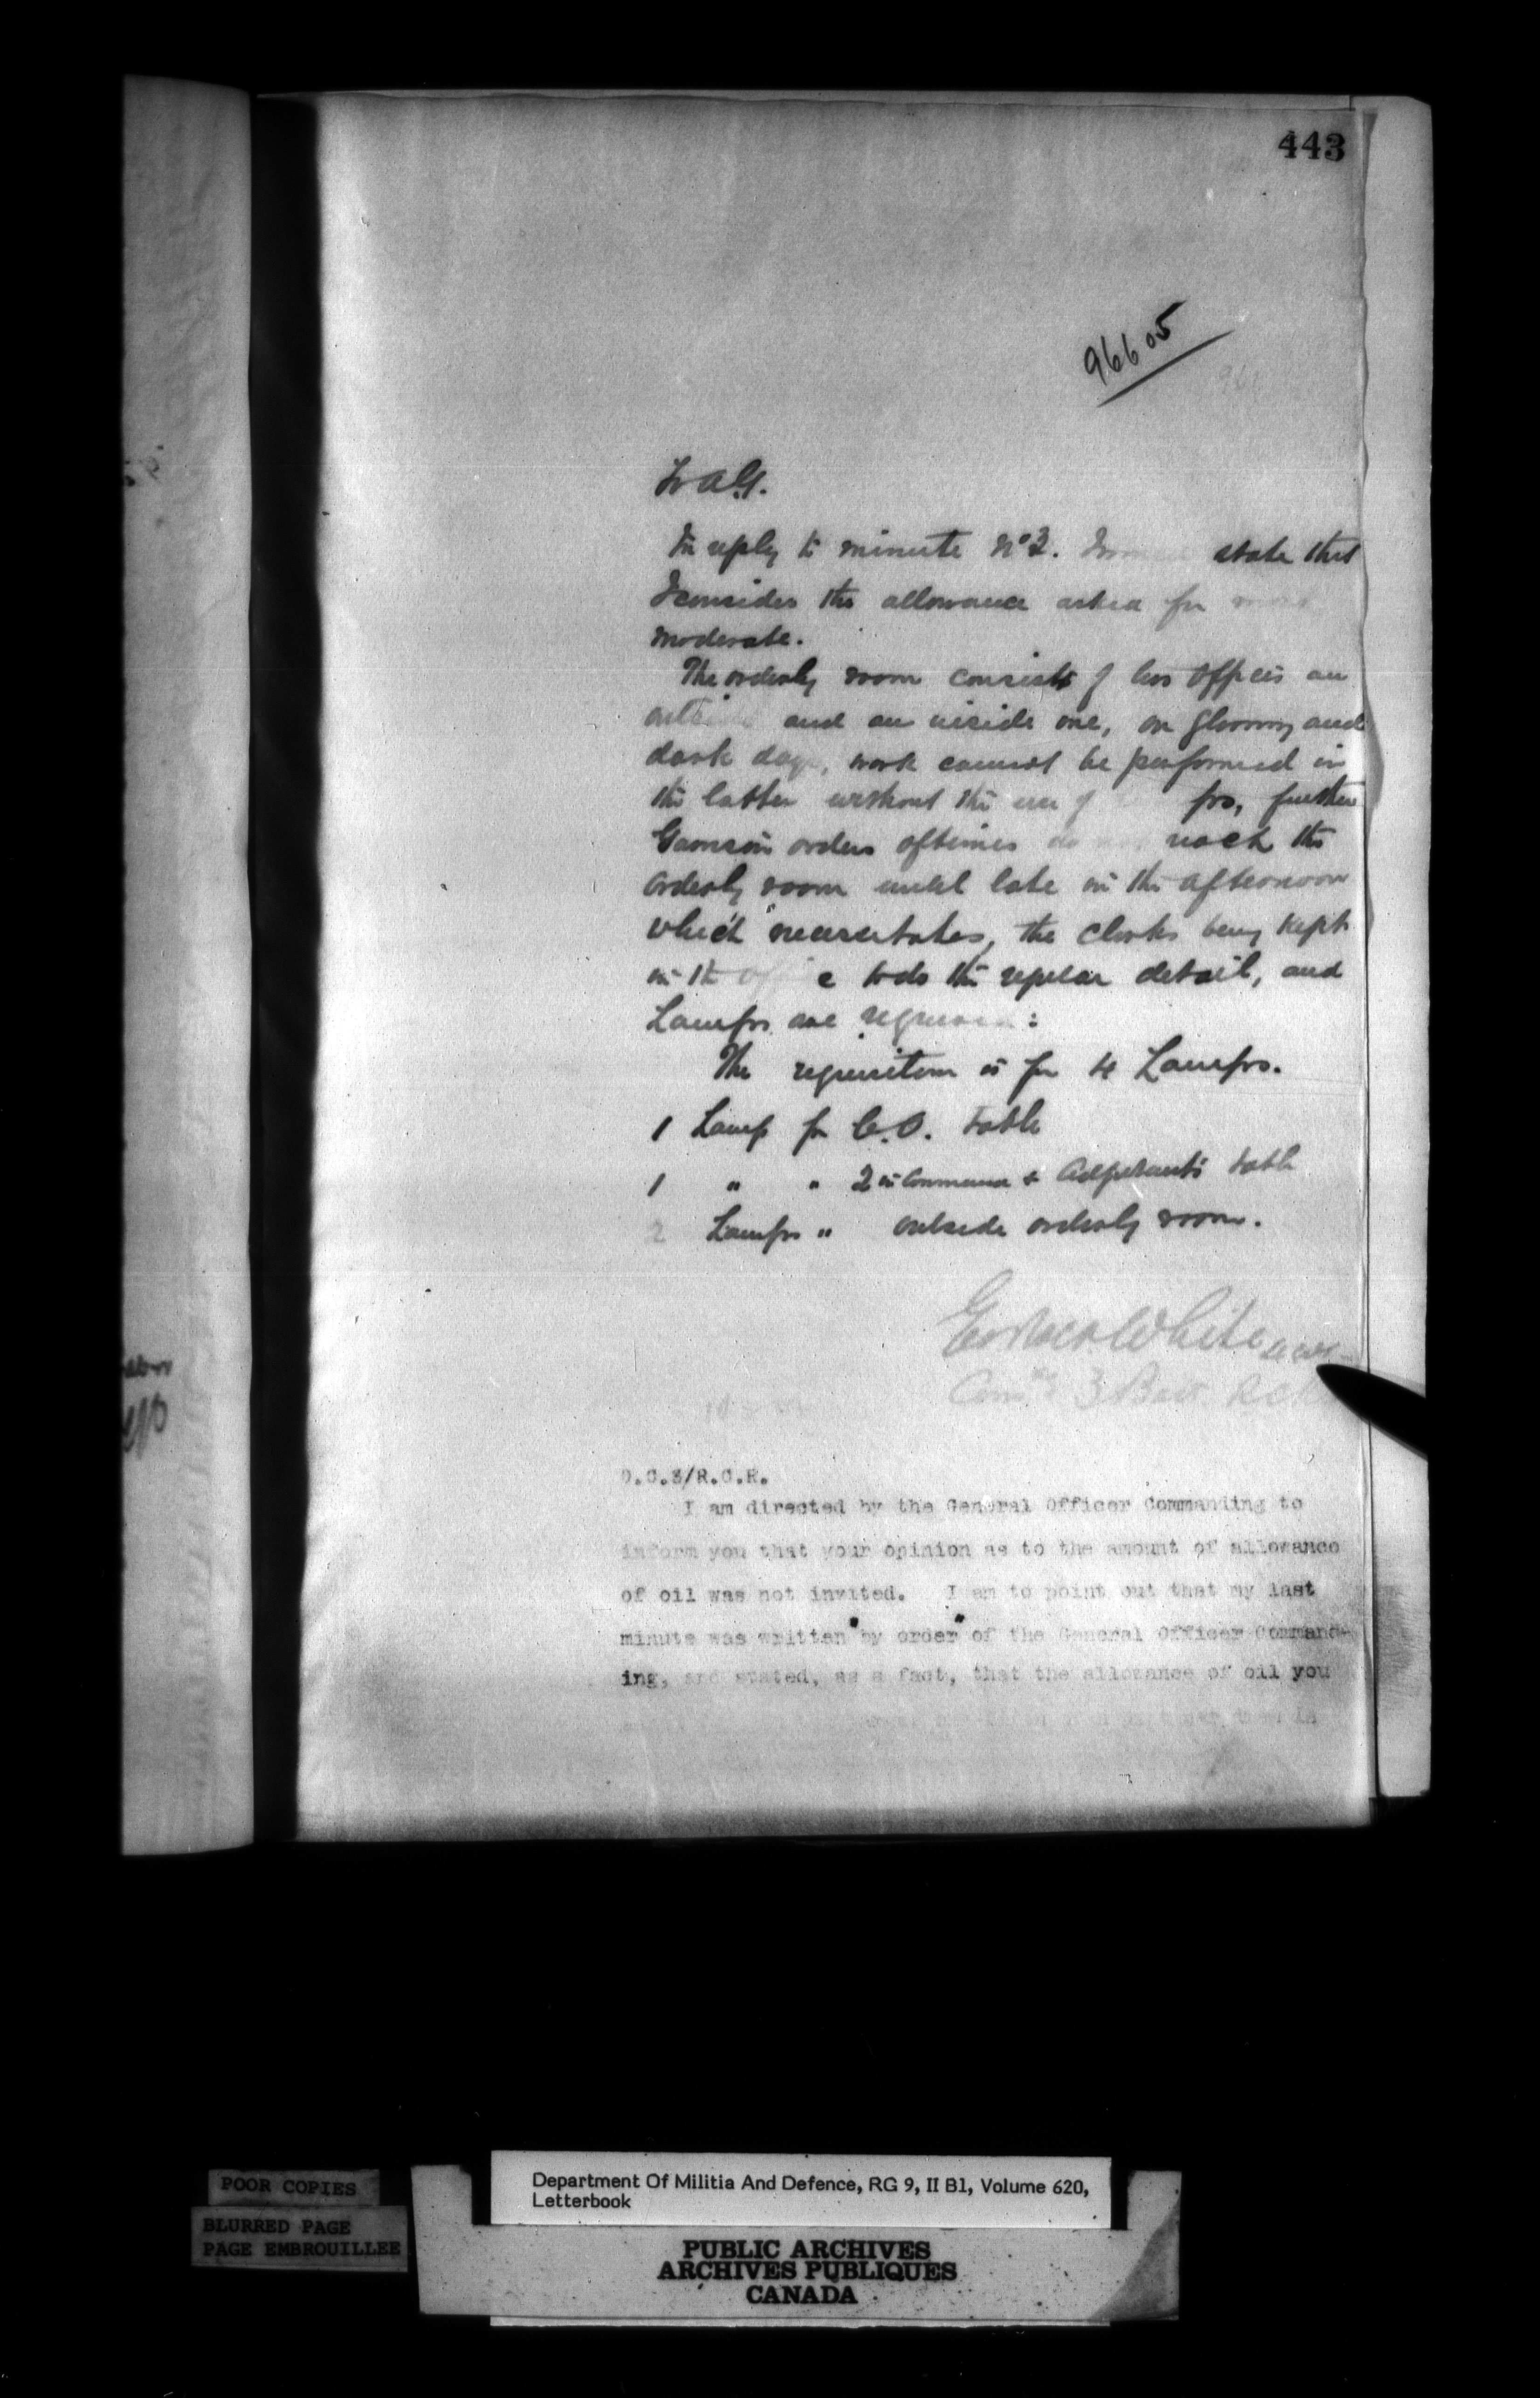 443
96605
In reply to minute No 3. state that
I consider the allowance asked for
moderate.
The orderly room consists of two offices an
outside and an inside one, on gloomy and
dark days, work cannot be performed in
the latter without the use of further
Garrison orders oftimes do not reach the
orderly room until late in the afternoon
which necessitates, the clerks being kept
in the office to do the regular detail, and
Lamps are required:
The requisition is for 4 Lamps.
1 Lamp for C.O. table
1 " " 2 in Command & Adjutant's table
2 Lamps " outside orderly room.
White
3 Batt.
O.C.3/R.C.R.
I am directed by the General Officer Commanding to
inform you that your opinion as to the amount of allowance
of oil was not invited. I am to point out that my last
minute was written "by order" of the General Officer Command-
ing, and stated, as a fact, that the allowance of oil you
in
POOR COPIES
BLURRED PAGE
PAGE EMBROUILLEE
Department Of Militia And Defence, RG 9, II B1, Volume 620,
Letterbook
PUBLIC ARCHIVES
ARCHIVES PUBLIQUES
CANADA